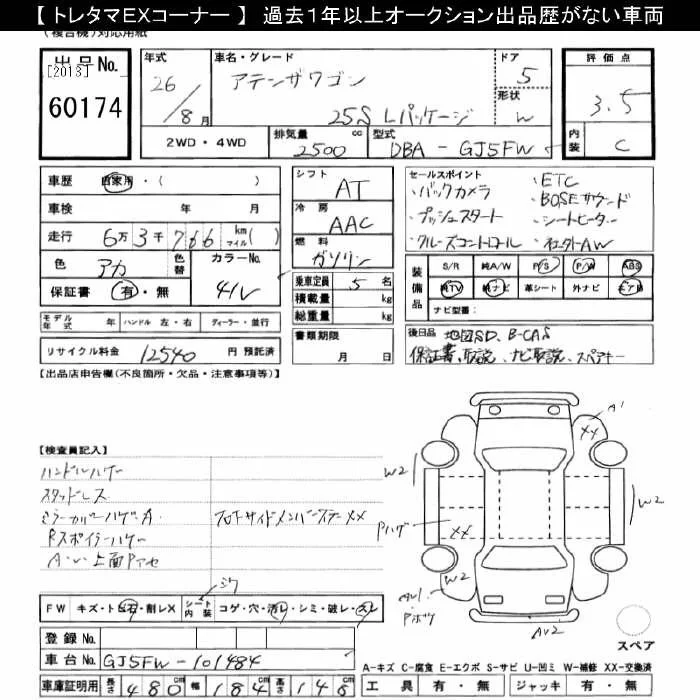 【トレタマEXコーナー】 過去1年以上オークション出品歴がない車両
(複合機)対応用紙
出品No.
[2013]
60174
年式
26/8月
車名・グレード
アテンザワゴン
25S Lパッケージ
ドア
5
形状
W
評価点
3.5
内装
C
2WD・4WD
排気量
2500 cc
型式
DBA-GJ5FW
車歴 自家用・( )
車検 年 月
走行 6万3千766 km マイル( )
色 アカ
色替
カラーNo.
41V
保証書 有・無
シフト
AT
冷房
AAC
燃料
ガソリン
乗車定員 5名
積載量 kg
総重量 kg
書類期限
月 日
セールスポイント
・バックカメラ
・プッシュスタート
・クルーズコントロール
・ETC
・BOSEサウンド
・シートヒーター
・社外AW
装備品
S/R 純A/W P/S P/W ABS
純TV 純ナビ 革シート 外ナビ エアB
ナビ型番:
モデル年式 年 ハンドル 左・右 ディーラー・並行
リサイクル料金 12540 円 預託済
後日品 地図SD、B-CAS
保証書、取説、ナビ取説、スペアキー
【出品店申告欄(不良箇所・欠品・注意事項等)】
【検査員記入】
ハンドルハゲ
スタッドレス
ミラーカバーハゲ・A
Rスポイラーハゲ
フロトサイドメンバーステーXX
A'
XX
W2
W2
Pハゲ
XX
W2
AU1
AU2
スペア
FW キズ・トビ石・削レX
シート内装
コゲ・穴・汚レ・シミ・破レ・スレ
登録No.
車台No. GJ5FW-101484
車庫証明用 長さ 480 cm 幅 184 cm 高さ 148 cm
A-キズ C-腐食 E-エクボ S-サビ U-凹ミ W-補修 XX-交換済
工具 有・無 ジャッキ 有・無